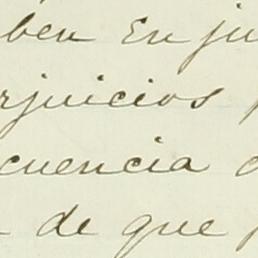 ben en ju
rjuicios p
cuencia d
de que p